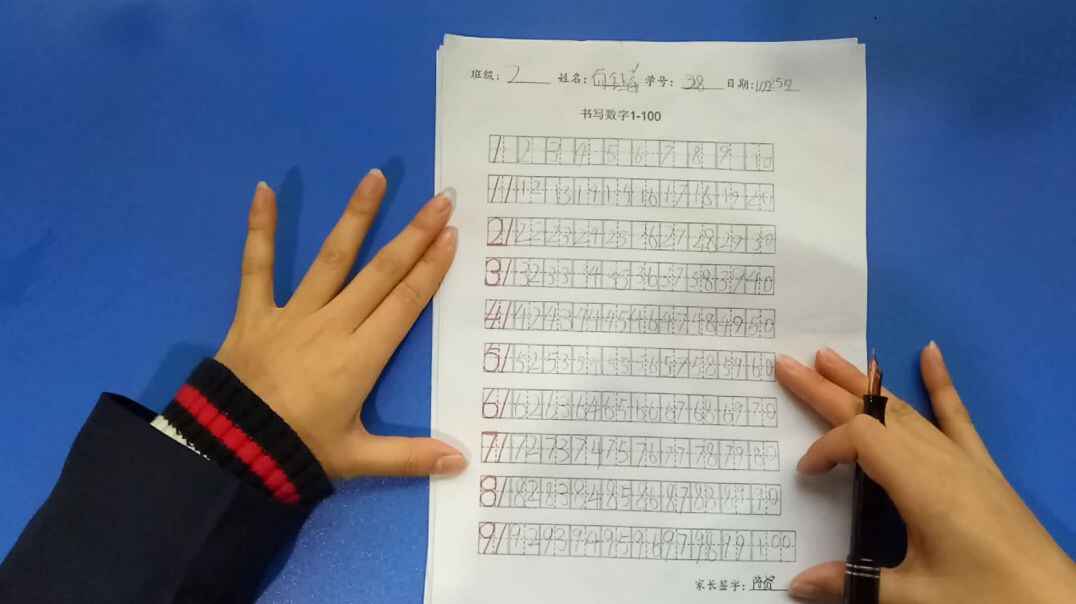 班级: 2 姓名: 学号: 38 日期:
书写数字1-100
1 2 3 4 5 6 7 8 9 10
11 12 13 14 15 16 17 18 19 20
21 22 23 24 25 26 27 28 29 30
31 32 33 34 35 36 37 38 39 40
41 42 43 44 45 46 47 48 49 50
51 52 53 54 55 56 57 58 59 60
61 62 63 64 65 66 67 68 69 70
71 72 73 74 75 76 77 78 79 80
81 82 83 84 85 86 87 88 89 90
91 92 93 94 95 96 97 98 99 100
家长签字: